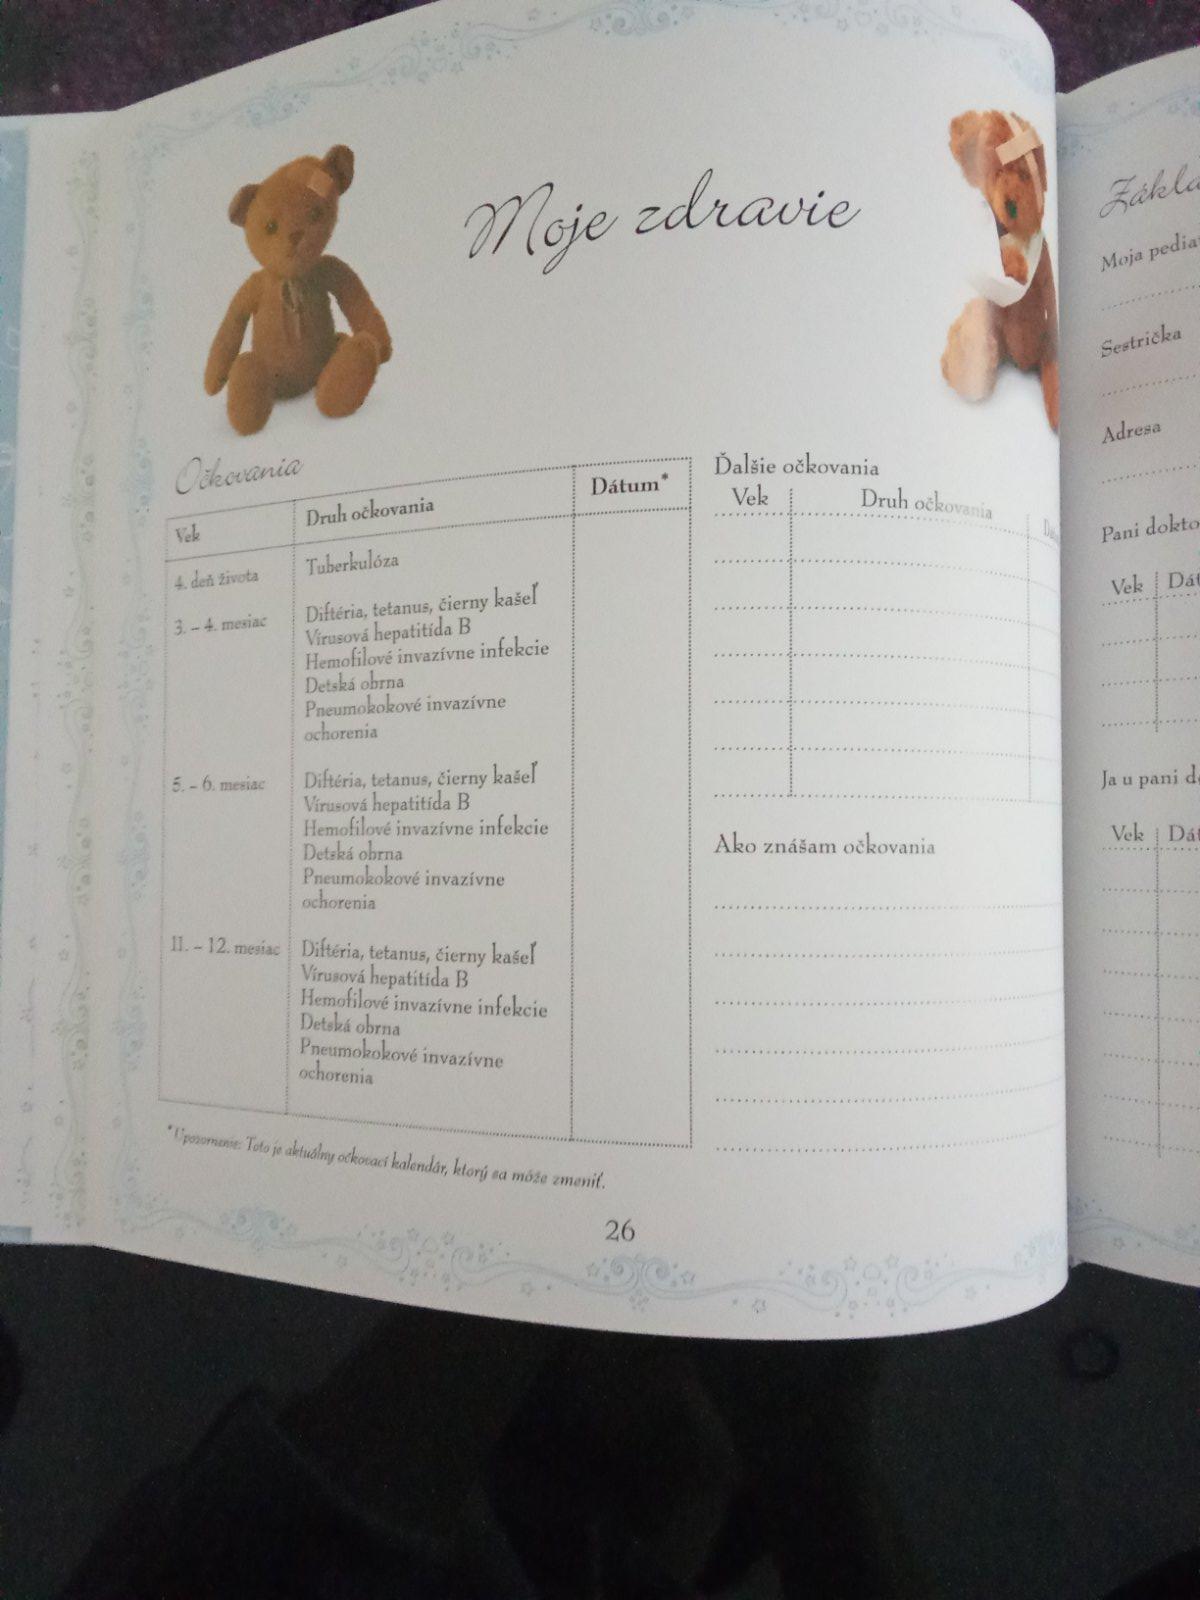 Moje zdravie
Očkovania
Vek
Druh očkovania
Dátum*
4. deň života
Tuberkulóza
3. – 4. mesiac
Diftéria, tetanus, čierny kašeľ
Vírusová hepatitída B
Hemofilové invazívne infekcie
Detská obrna
Pneumokokové invazívne
ochorenia
5. – 6. mesiac
Diftéria, tetanus, čierny kašeľ
Vírusová hepatitída B
Hemofilové invazívne infekcie
Detská obrna
Pneumokokové invazívne
ochorenia
11. – 12. mesiac
Diftéria, tetanus, čierny kašeľ
Vírusová hepatitída B
Hemofilové invazívne infekcie
Detská obrna
Pneumokokové invazívne
ochorenia
* Upozornenie: Toto je aktuálny očkovací kalendár, ktorý sa môže zmeniť.
Ďalšie očkovania
Vek
Druh očkovania
Ako znášam očkovania
26
Moja
Sestrička
Adresa
Pani
Vek
Ja u pani
Vek